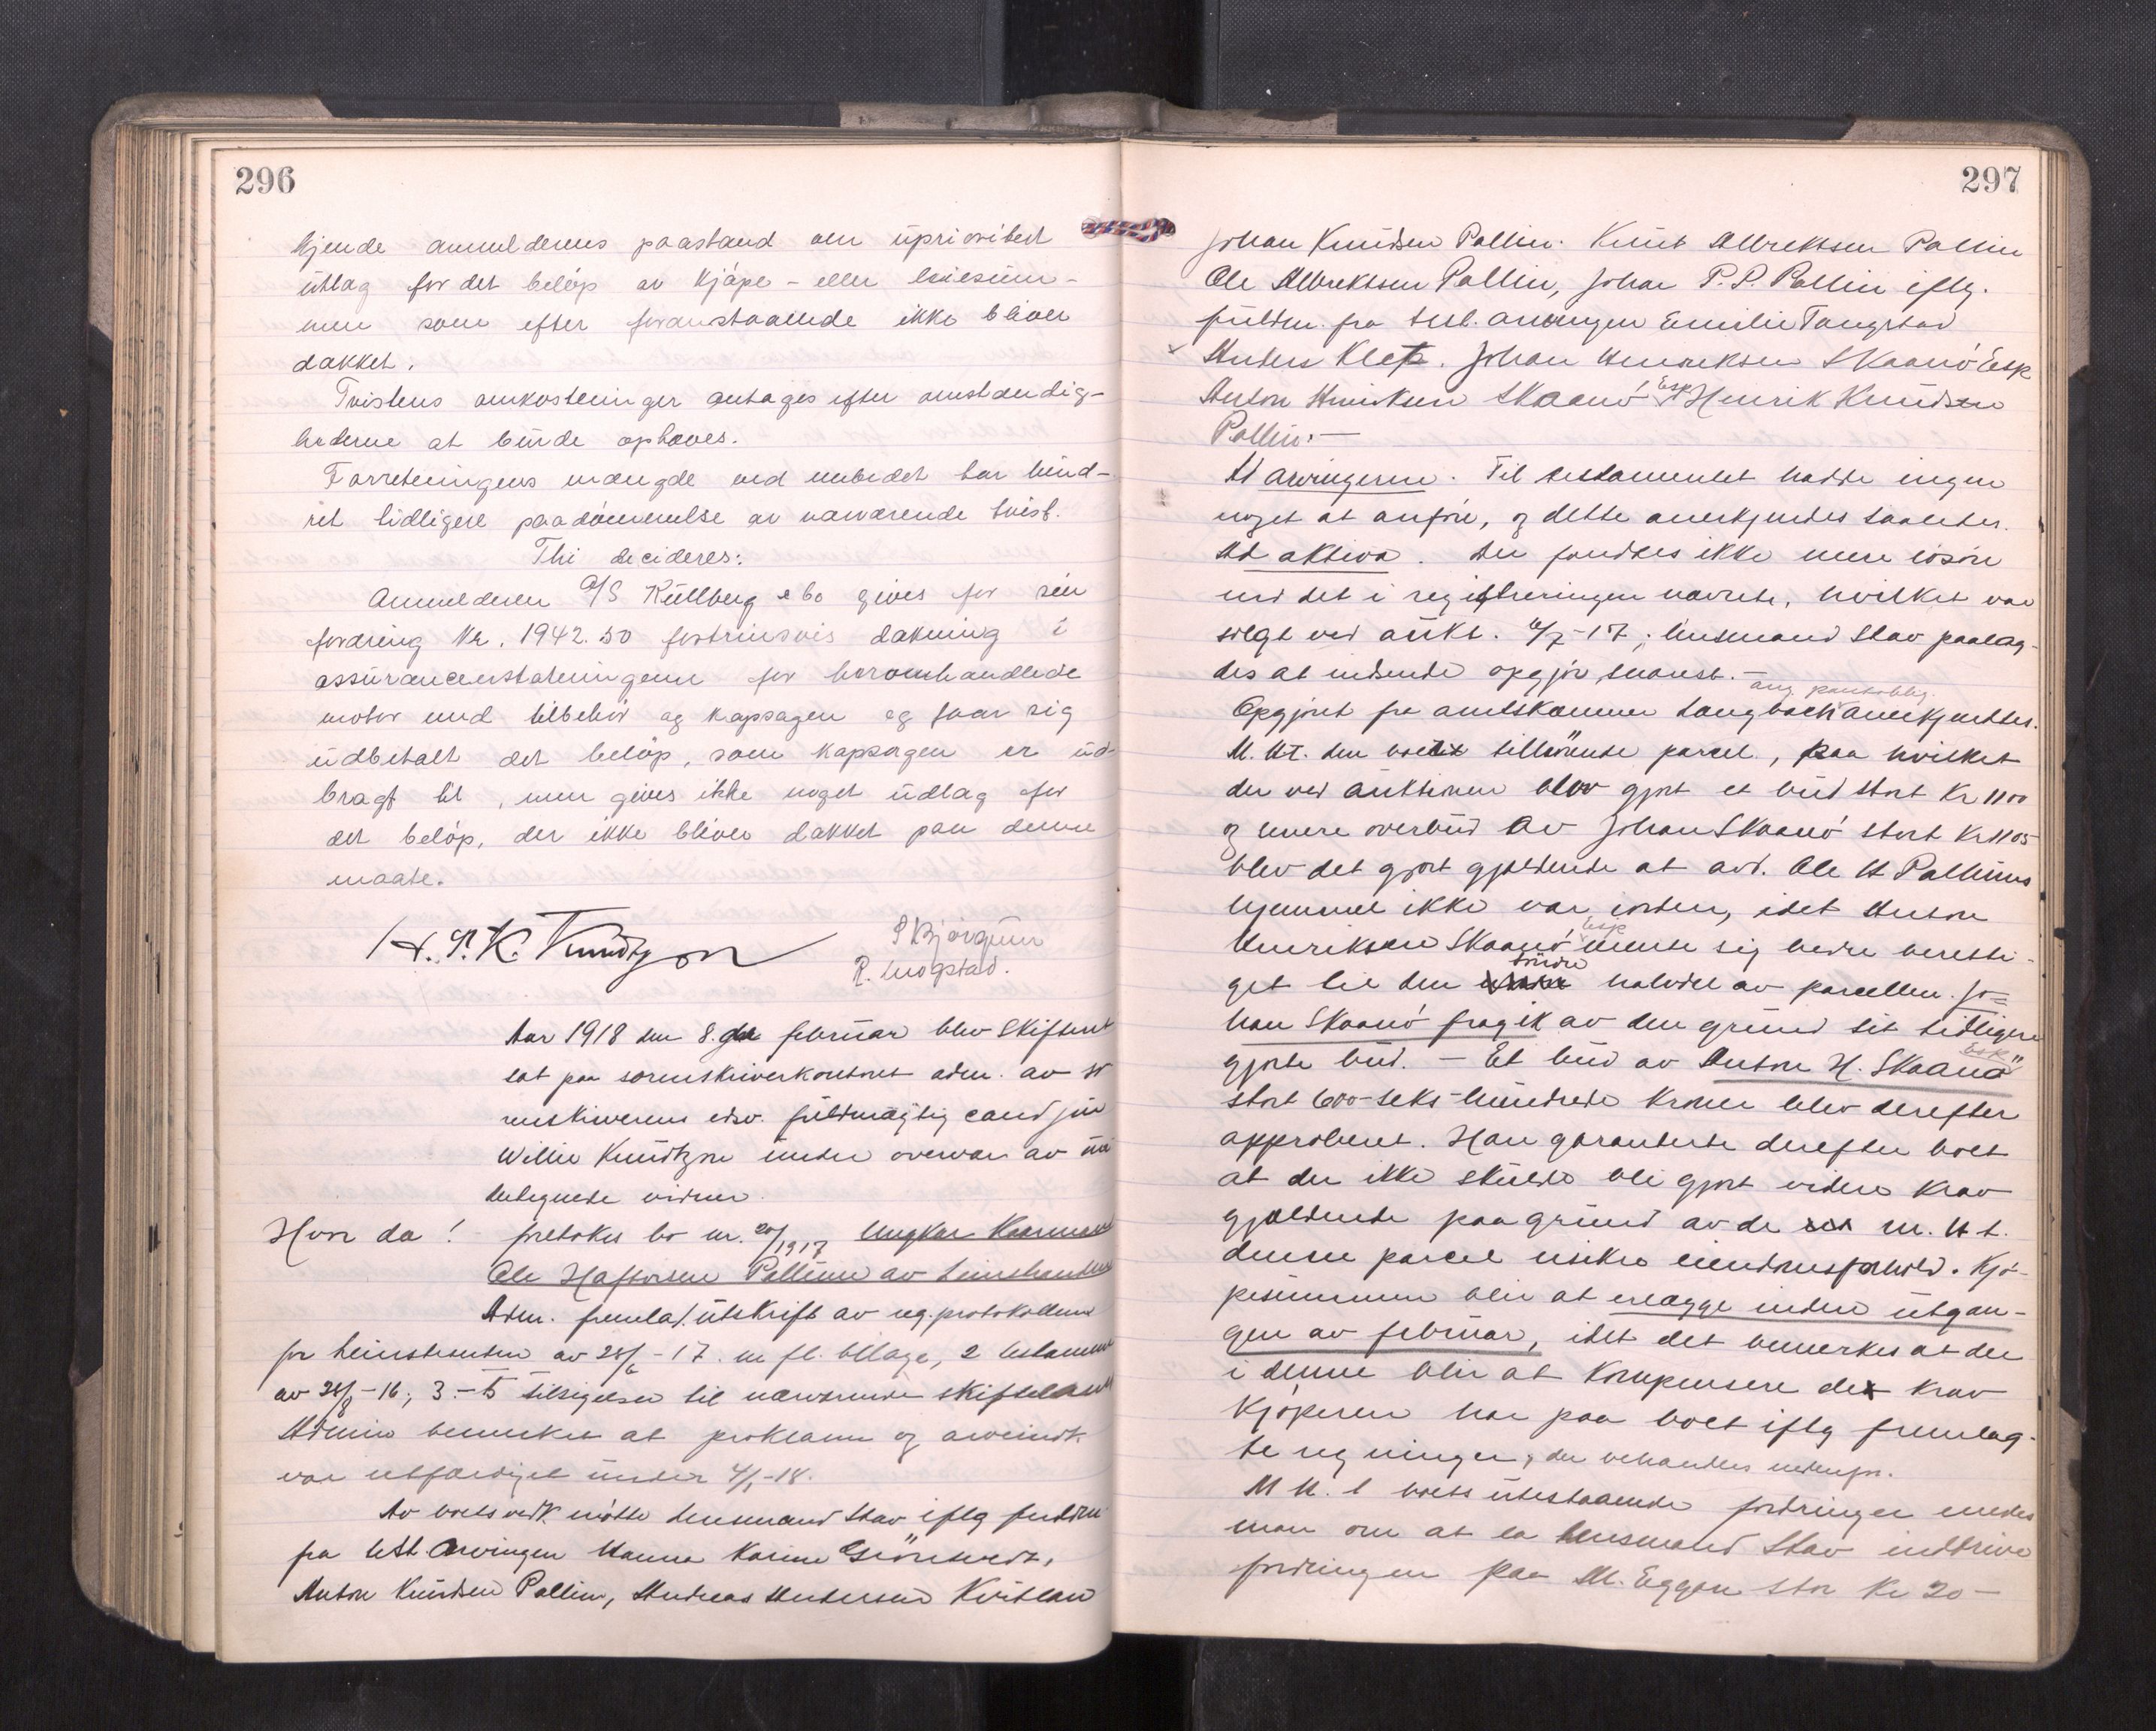 296
kjende anmelderens paastand om uprioritert
utlæg for det beløp av kjøpe- eller leiesum-
men som efter foranstaaende ikke bliver
dækket.
Tvistens omkostninger antages efter omstændig-
hederne at burde ophæves.
Forretningens mængde ved embedet har hind-
ret tidligere paadømmelse av nærværende tvist.
Thi decideres:
Anmelderen A/S Küllberg & Co gives for sin
fordring Kr. 1942.50 fortrinsvis dækning i
assuranceerstatningen for heromhandlede
motor med tilbehør og kapsagen og faar sig
udbetalt det beløp, som kapsagen er ud-
bragt til, men gives ikke noget udlæg for
det beløp, der ikke bliver dækket paa denne
maate.
H. P. K. Knudtzon
P Bjørgum
R. Mogstad.
Aar 1918 den 8. de februar blev skifteret
sat paa sorenskriverkontoret adm. av so
renskriverens edsv. fuldmægtig cand jur
Willie Knudtzon under overvær av un
dertegnede vidner.
Hvor da! foretokes bo nr. 20/1917 Ungkar Kaarmand
Ole Halvorsen Pallin av Leinstranden
Adm. fremla 1. utskrift av reg. protokollen
for Leinstranden av 28/6-17. m fl. bilage, 2 testamente
av 28/8-16; 3.-5 tilsigelser til nærværende skiftesam
Admin bemerket at proklama og arveindk.
var utfærdiget under 4/1-18.
Av boets vedk møtte lensmand Stav iflg fuldm
fra test. arvingen Hanna Karine Grönstvedt,
Anton Knudsen Pallin, Andreas Andersen Kvitland
297
Johan Knudsen Pallin. Knut Albrektsen Pallin
Ole Albrektsen Pallin, Johan P. P. Pallin iflg.
fuldm. fra test. arvingen Emilie Tangstad
Anders Klet. Johan Henriksen Skaanø Esp
Anton Henriksen Skaanø Esp Henrik Knudsen
Pallin.—
Ad arvingerne. Til testamentet hadde ingen
noget at anføre, og dette anerkjendtes saaledes.
Ad aktiva. Der fandtes ikke mere løsøre
end det i registreringen nævnte, hvilket var
solgt ved aukt. 6/7-17; lensmand Stav paalag-
des at indsende opgjør snarest.—
ang. pantoblig.
Opgjøret fra amtskasserer Langbach anerkjendtes.
M. H. t. den boet tilhørende parcel, paa hvilket
der ved auktionen blev gjort et bud stort Kr 1100
og senere overbud av Johan Skaanø stort Kr 1105
blev det gjort gjældende at avd. Ole H Pallins
hjemmel ikke var iorden, idet Anton
Henriksen Skaanø Esp mente sig bedre beretti-
get til den søndre halvdel av parcellen. Jo-
han Skaanø fragik av den grund sit tidligere
gjorte bud. — Et bud av Anton H. Skaanø Esp
stort 600-seks-hundrede kroner blev derefter
approberet. Han garanterte derefter boet
at der ikke skulde bli gjort videre krav
gjældende paa grund av de m. H. t.
denne parcel usikre eiendomsforhold. Kjø-
pesummen blir at erlægge inden utgan-
gen av februar, idet det bemerkes at der
i denne blir at kompensere det krav
kjøperen har paa boet iflg fremlag-
te regninger, der behandles nedenfor.
M H. t boets utestaaende fordringer enedes
man om at la lensmand Stav inddrive
fordringen paa M. Eggen stor Kr 20—